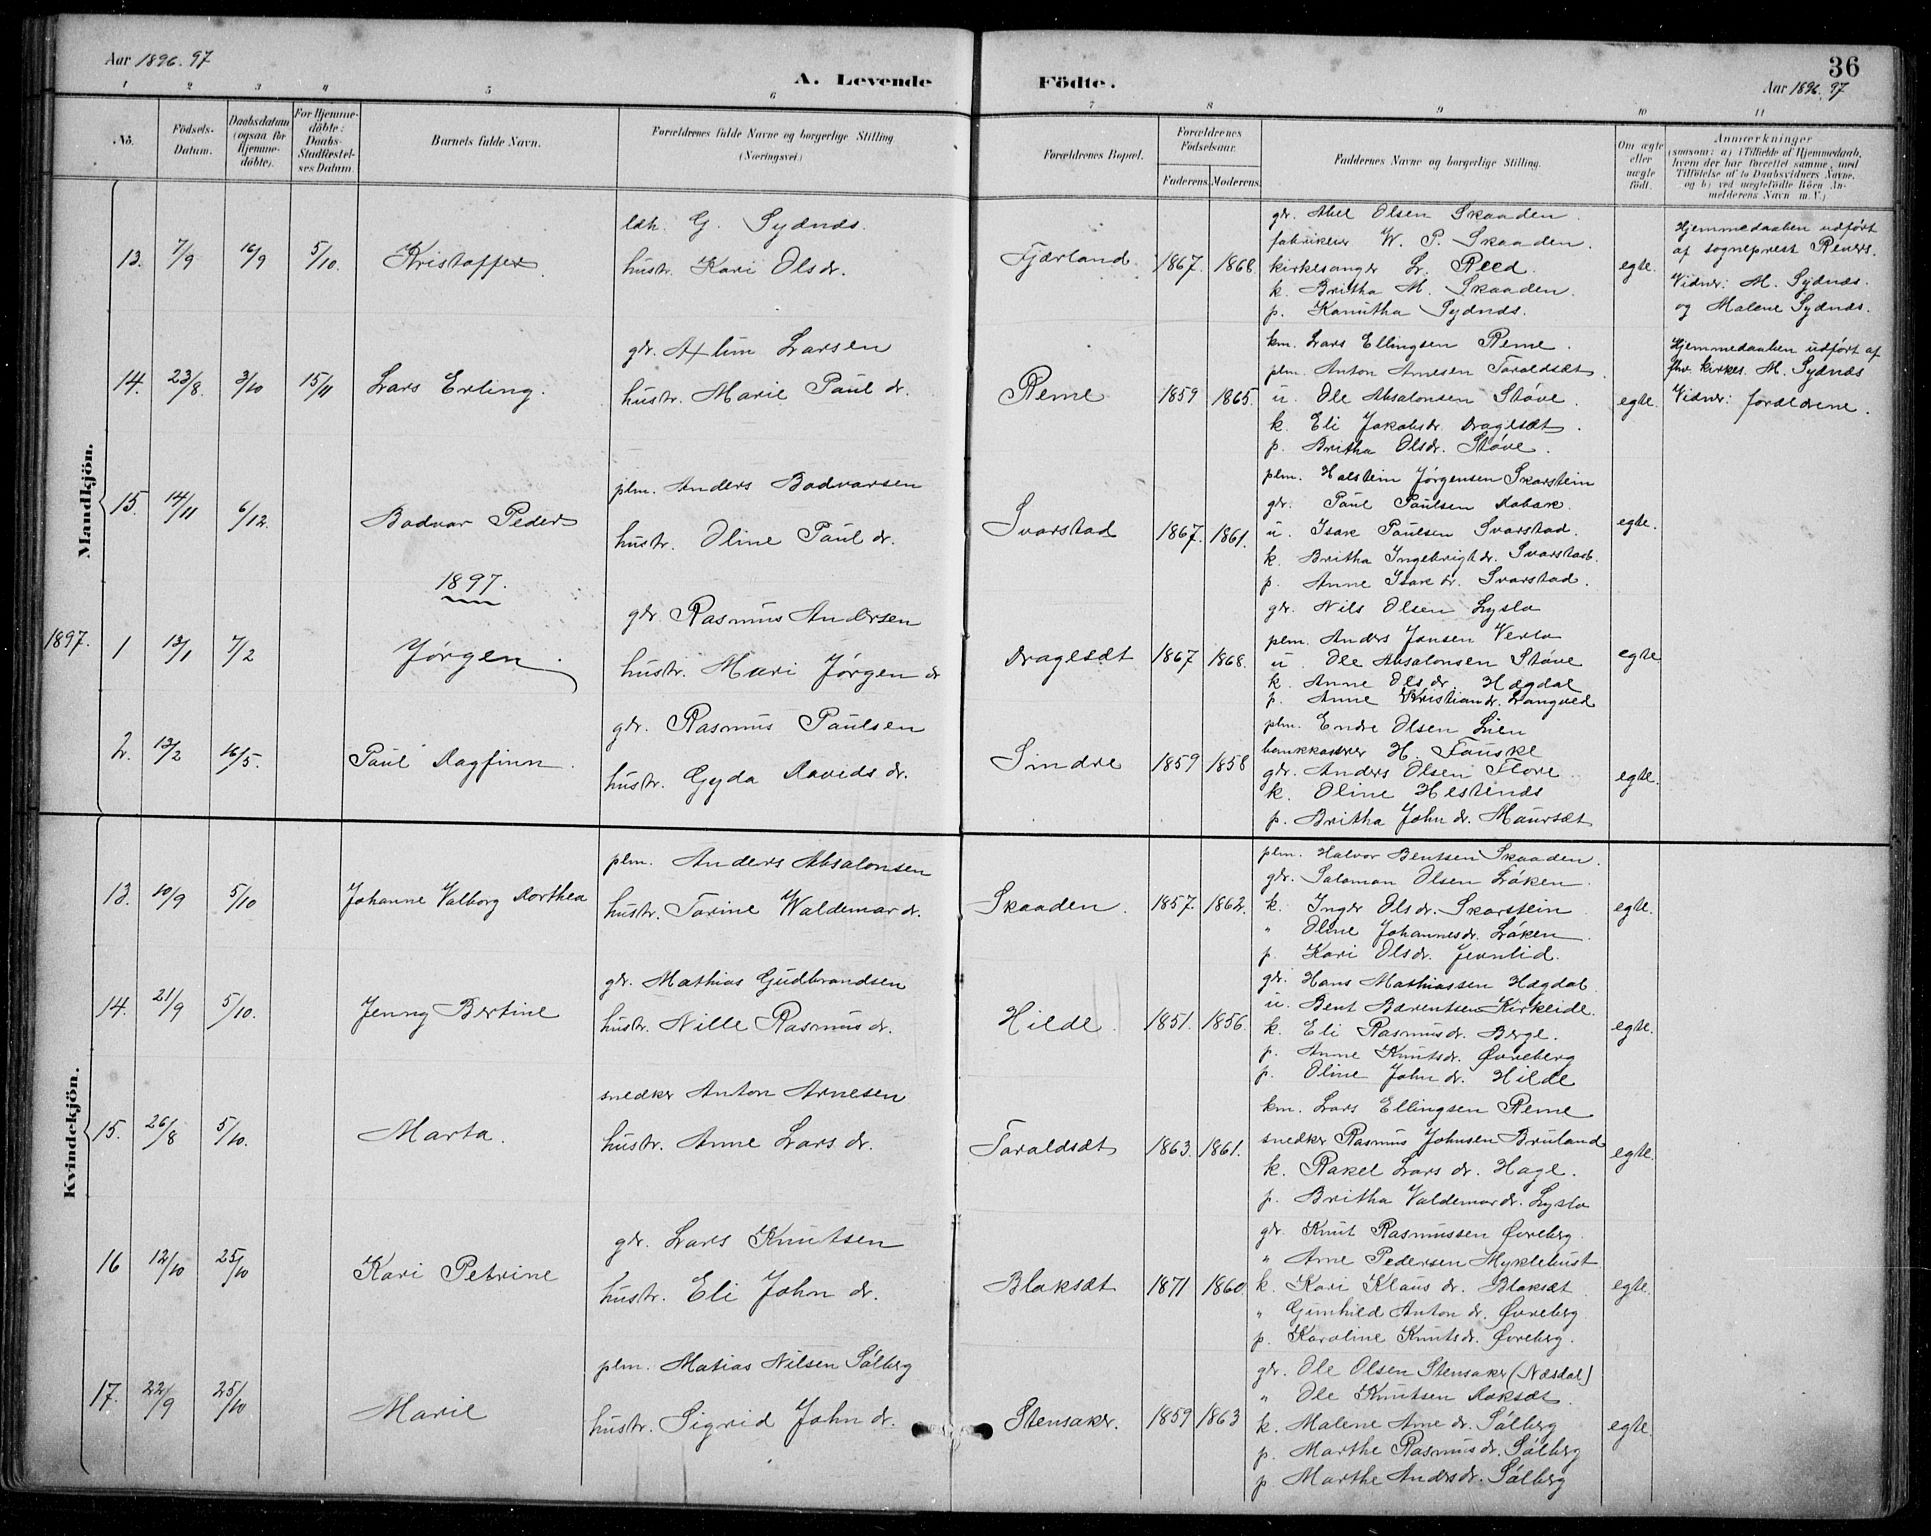 Aar 1896. 97
A. Levende Födte.
36
Aar 1896. 97
1 2 3 4 5 6 7 8 9 10 11
No.
Födsels-Datum.
Daabsdatum (ogsaa for Hjemme-döbte).
For Hjemme-döbte: Daabs-Stadfæstel-ses Datum.
Barnets fulde Navn.
Forældrenes fulde Navne og borgerlige Stilling (Næringsvei).
Forældrenes Bopæl.
Forældrenes Födselsaar.
Faderens. Moderens.
Faddernes Navne og borgerlige Stilling.
Om ægte eller uægte födt.
Anmærkninger
(saasom: a) i Tilfælde af Hjemmedaab, hvem der har forrettet samme, med Tilföielse af to Daabsvidners Navne, og b) ved uægtefödte Börn An-melderens Navn m. V.)
Mandkjön.
13. 7/9 16/9 5/10. Kristoffer.
ldh. G. Sydnæs.
hustr. Kari Olsdr.
Fjærland. 1867. 1868.
gdr. Abel Olsen Skaaden.
fabrikeier W. P. Skaaden.
kirkesanger L. Reed.
k. Britha M. Skaaden.
p. Kanutha Sydnæs.
egte.
Hjemmedaaben udført
af sogneprest Reners.
Vidner: M. Sydnæs.
og Malene Sydnæs.
14. 23/8. 3/10 15/11 Lars Erling.
gdr. Axlim Larsen
hustr. Marie Paul dr.
Reme 1859 1865.
km. Lars Ellingsen Reme.
plm. Anton Arnesen Taraldsæt.
u. Ole Absalonsen Støve.
k. Eli Jakobsdr. Dragesæt.
p. Britha Olsdr. Støve.
egte.
Hjemmedaaben udført af
fhv. kirkes. M. Sydnæs
Vidner: forældrene.
15. 14/11 6/12. Bodvar Peder
plm. Anders Bodvarsen
hustr. Oline Paul dr.
Svarstad 1867. 1861.
plm. Halstein Jørgensen Skarstein
gdr. Paul Paulsen Aabak.
u. Isak Paulsen Svarstad.
k. Britha Ingebrigtdr. Svarstad.
p. Anne Isak dr. Svarstad.
egte.
1897.
1897. 1 13/1 7/2 Jørgen.
gdr. Rasmus Andersen
hustr. Mari Jørgen dr
Dragesæt 1867 1868.
gdr. Nils Olsen Lyslo
plm. Anders Jansen Verlo
u. Ole Absalonsen Støve
k. Anne Ols dr. Hægdal
p. Anne Kristiandr. Langved
egte
2. 13/2 16/5. Paul Dagfinn.
gdr. Rasmus Paulsen
hustr. Gyda Davids dr.
Sindre 1859 1858
plm. Endre Olsen Lien
bankkasserer H. Fauske
gdr. Anders Olsen Flore.
k. Oline Hestenæs
p. Britha John dr. Maursæt
egte.
Kvindekjön.
13. 10/9 5/10 Johanne Valborg Dorthea
plm. Anders Absalonsen
hustr. Tarine Waldemar dr.
Skaaden. 1857. 1862.
plm. Halvor Bentsen Skaaden.
gdr. Salomon Olsen Løken.
k. Inger Olsdr. Skarstein
" Oline Johannesdr. Løken
p. Kari Olsdr. Jevnlid.
egte.
14. 21/9 5/10. Jenny Bertine
gdr. Mathias Gudbrandsen
hustr. Nille Rasmus dr.
Hilde. 1851. 1856.
gdr. Hans Mathiassen Hægdal.
u. Bent Bærentsen Kirkeide.
k. Eli Rasmusdr. Berge.
p. Anne Knutsdr. Øvreberg
p. Oline John dr. Hilde
egte.
15. 26/8 5/10. Marta.
snedker Anton Arnesen
hustr. Anne Lars dr.
Taraldsæt 1863. 1861.
km. Lars Ellingsen Reme
snedker Rasmus Johnsen Bruland
k. Rakel Lars dr. Hage.
p. Britha Valdemar dr. Lyslo
egte.
16 12/10 25/10 Kari Petrine
gdr. Lars Knutsen
hustr. Eli John dr.
Blaksæt 1871 1860
gdr. Knut Rasmussen Øvreberg.
" Arne Pedersen Myklebust
k. Kari Klaus dr. Blaksæt
" Gunhild Anton dr. Øvreberg
p. Karoline Knutsdr. Øvreberg.
egte.
17. 22/9 25/10 Marie
plm. Matias Nilsen Sølberg
hustr. Sigrid John dr.
Stensaker. 1859 1863
gdr. Ole Olsen Stensaker (Næsdal)
" Ole Knutsen Aaksæt.
k. Malene Arne dr. Sølberg
p. Marthe Rasmusdr. Sølberg
p. Marthe Andersdr. Sølberg
egte.